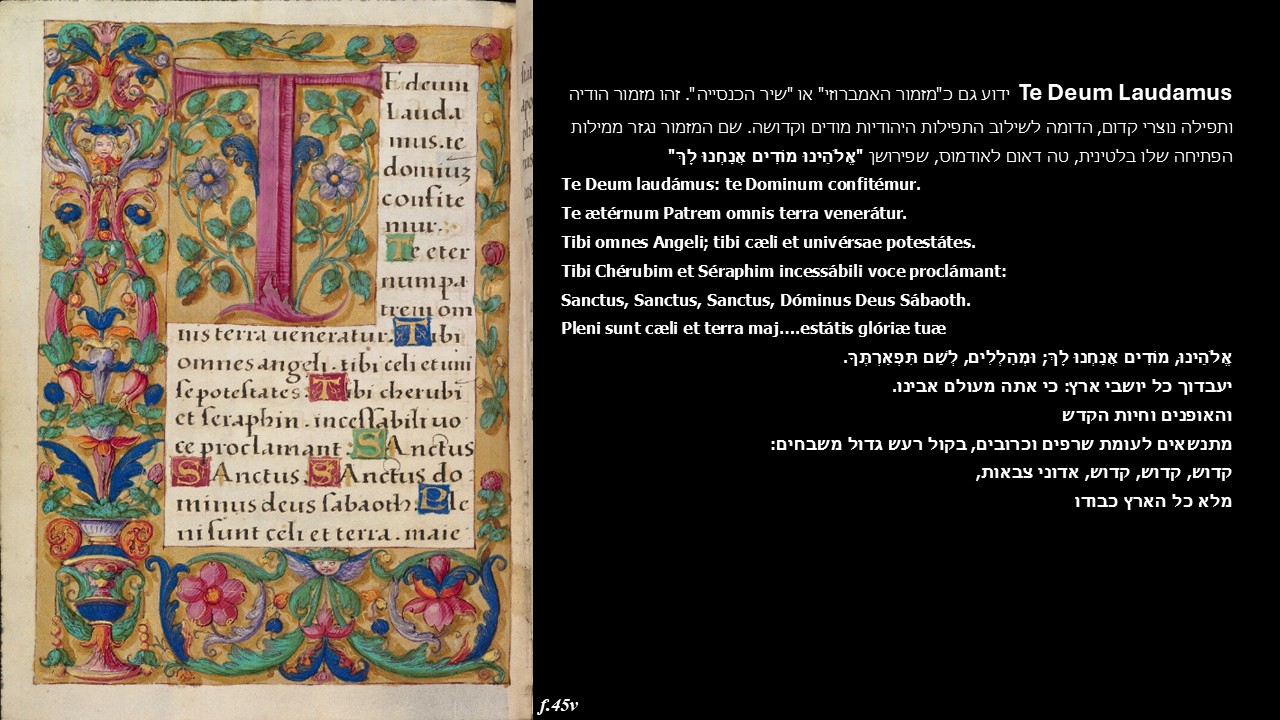 T
E deum
lauda
mus.te
dominū
confite
mur.
Te eter
num pa
trem om
nis terra ueneratur. Tibi
omnes angeli. tibi celi et uni
se potestates. Tibi cherubi
et seraphin. incessabili uo
ce proclamant. SAnctus
SAnctus. SAnctus do
minus deus sabaoth. Ple
ni sunt celi et terra. maie
Te Deum Laudamus ידוע גם כ"מזמור האמברוזי" או "שיר הכנסייה". זהו מזמור הודיה
ותפילה נוצרי קדום, הדומה לשילוב התפילות היהודיות מודים וקדושה. שם המזמור נגזר ממילות
הפתיחה שלו בלטינית, טה דאום לאודמוס, שפירושן "אֱלֹהֵינוּ מוֹדִים אֲנַחְנוּ לָךְ"
Te Deum laudámus: te Dominum confitémur.
Te ætérnum Patrem omnis terra venerátur.
Tibi omnes Angeli; tibi cæli et univérsae potestátes.
Tibi Chérubim et Séraphim incessábili voce proclámant:
Sanctus, Sanctus, Sanctus, Dóminus Deus Sábaoth.
Pleni sunt cæli et terra maj....estátis glóriæ tuæ
אֱלֹהֵינוּ, מוֹדִים אֲנַחְנוּ לָךְ; וּמְהַלְלִים, לְשֵׁם תִּפְאַרְתֶּךָ.
יעבדוך כל יושבי ארץ: כי אתה מעולם אבינו.
והאופנים וחיות הקדש
מתנשאים לעומת שרפים וכרובים, בקול רעש גדול משבחים:
קדוש, קדוש, קדוש, אדוני צבאות,
מלא כל הארץ כבודו
f.45v